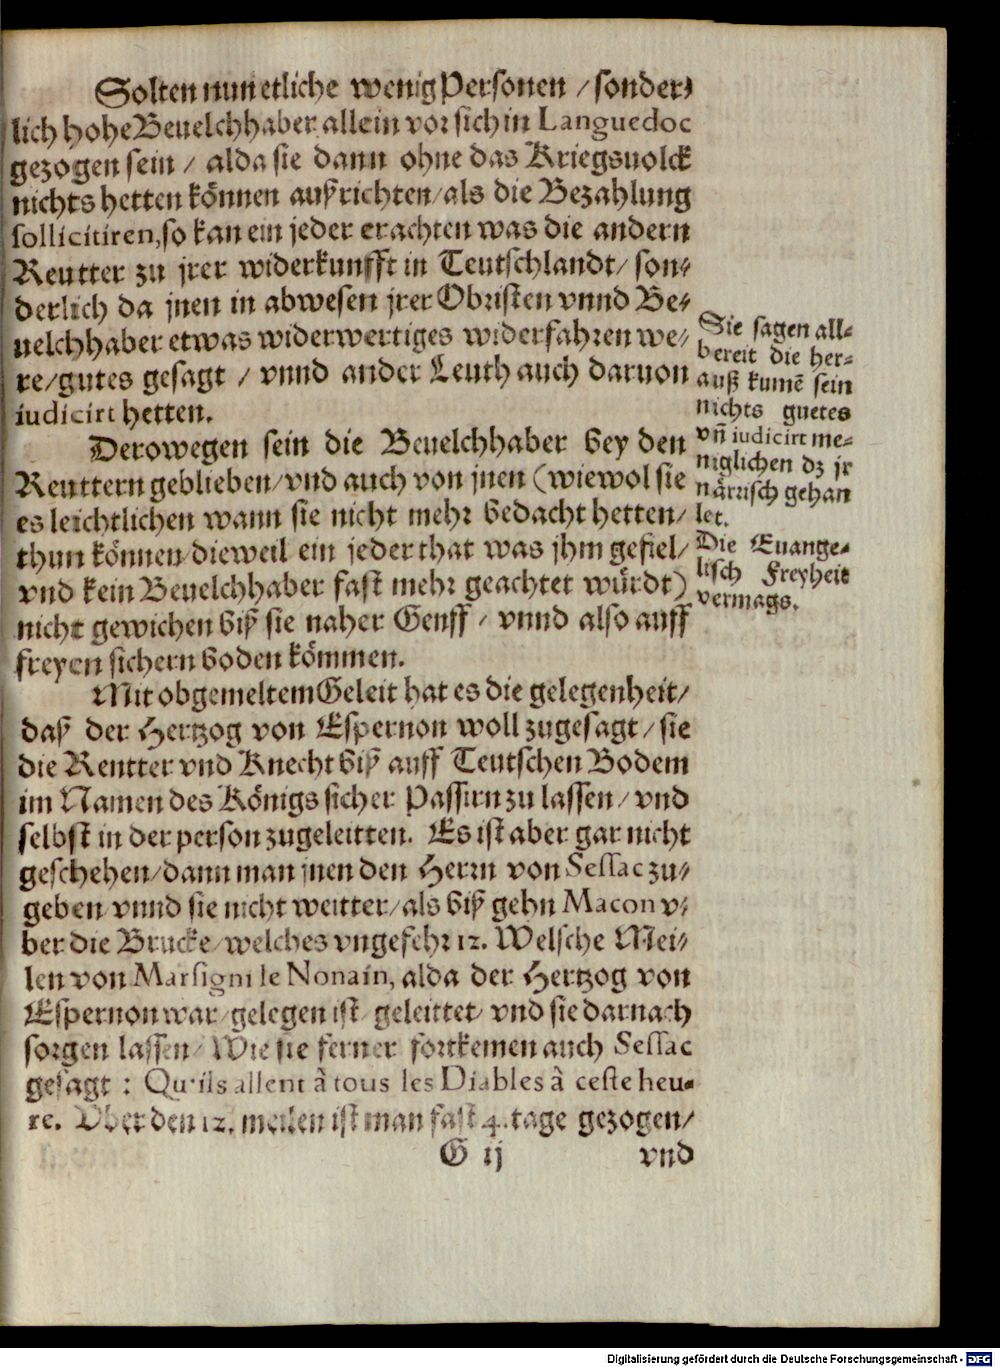 Solten nun etliche wenig Personen / sonder-
lich hohe Beuelchhaber allein vor sich in Languedoc
gezogen sein / alda sie dann ohne das Kriegsuolck
nichts hetten können außrichten / als die Bezahlung
sollicitiren, so kan ein jeder erachten was die andern
Reutter zu jrer widerkunfft in Teutschlandt / son-
derlich da jnen in abwesen jrer Obristen vnnd Be-
uelchhaber etwas widerwertiges widerfahren we-
re / gutes gesagt / vnnd ander Leuth auch daruon
iudicirt hetten.
Derowegen sein die Beuelchhaber bey den
Reuttern geblieben / vnd auch von jnen (wiewol sie
es leichtlichen wann sie nicht mehr bedacht hetten /
thun können / dieweil ein jeder that was jhm gefiel /
vnd kein Beuelchhaber fast mehr geachtet würdt)
nicht gewichen biß sie naher Genff / vnnd also auff
freyen sichern boden kommen.
Mit obgemeltem Geleit hat es die gelegenheit /
daß der Hertzog von Espernon woll zugesagt / sie
die Reutter vnd Knecht biß auff Teutschen Bodem
im Namen des Königs sicher Passirn zu lassen / vnd
selbst in der person zugeleitten. Es ist aber gar nicht
geschehen / dann man jnen den Herrn von Sessac zu-
geben vnnd sie nicht weitter / als biß gehn Macon v-
ber die Brucke / welches vngefehr 12. Welsche Mei-
len von Marsigni le Nonain, alda der Hertzog von
Espernon war / gelegen ist / geleittet / vnd sie darnach
sorgen lassen / Wie sie ferner fortkemen auch Sessac
gesagt : Qu'ils allent â tous les Diables â ceste heu-
re. Vber den 12. meilen ist man fast 4. tage gezogen /
G ij vnd
Sie sagen all-
bereit die her-
auß kumẽ sein
nichts guetes
vñ iudicirt me-
niglichen dz jr
närrisch gehan
let.
Die Euange-
lisch Freyheit
vermags.
Digitalisierung gefördert durch die Deutsche Forschungsgemeinschaft - DFG